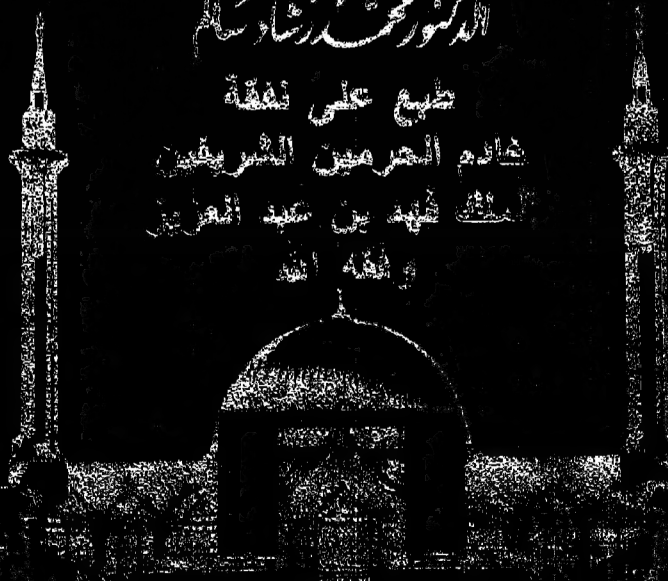 الدكتور محمد رشاد سالم
طبع على نفقة
خادم الحرمين الشريفين
الملك فهد بن عبد العزيز
وفقه الله